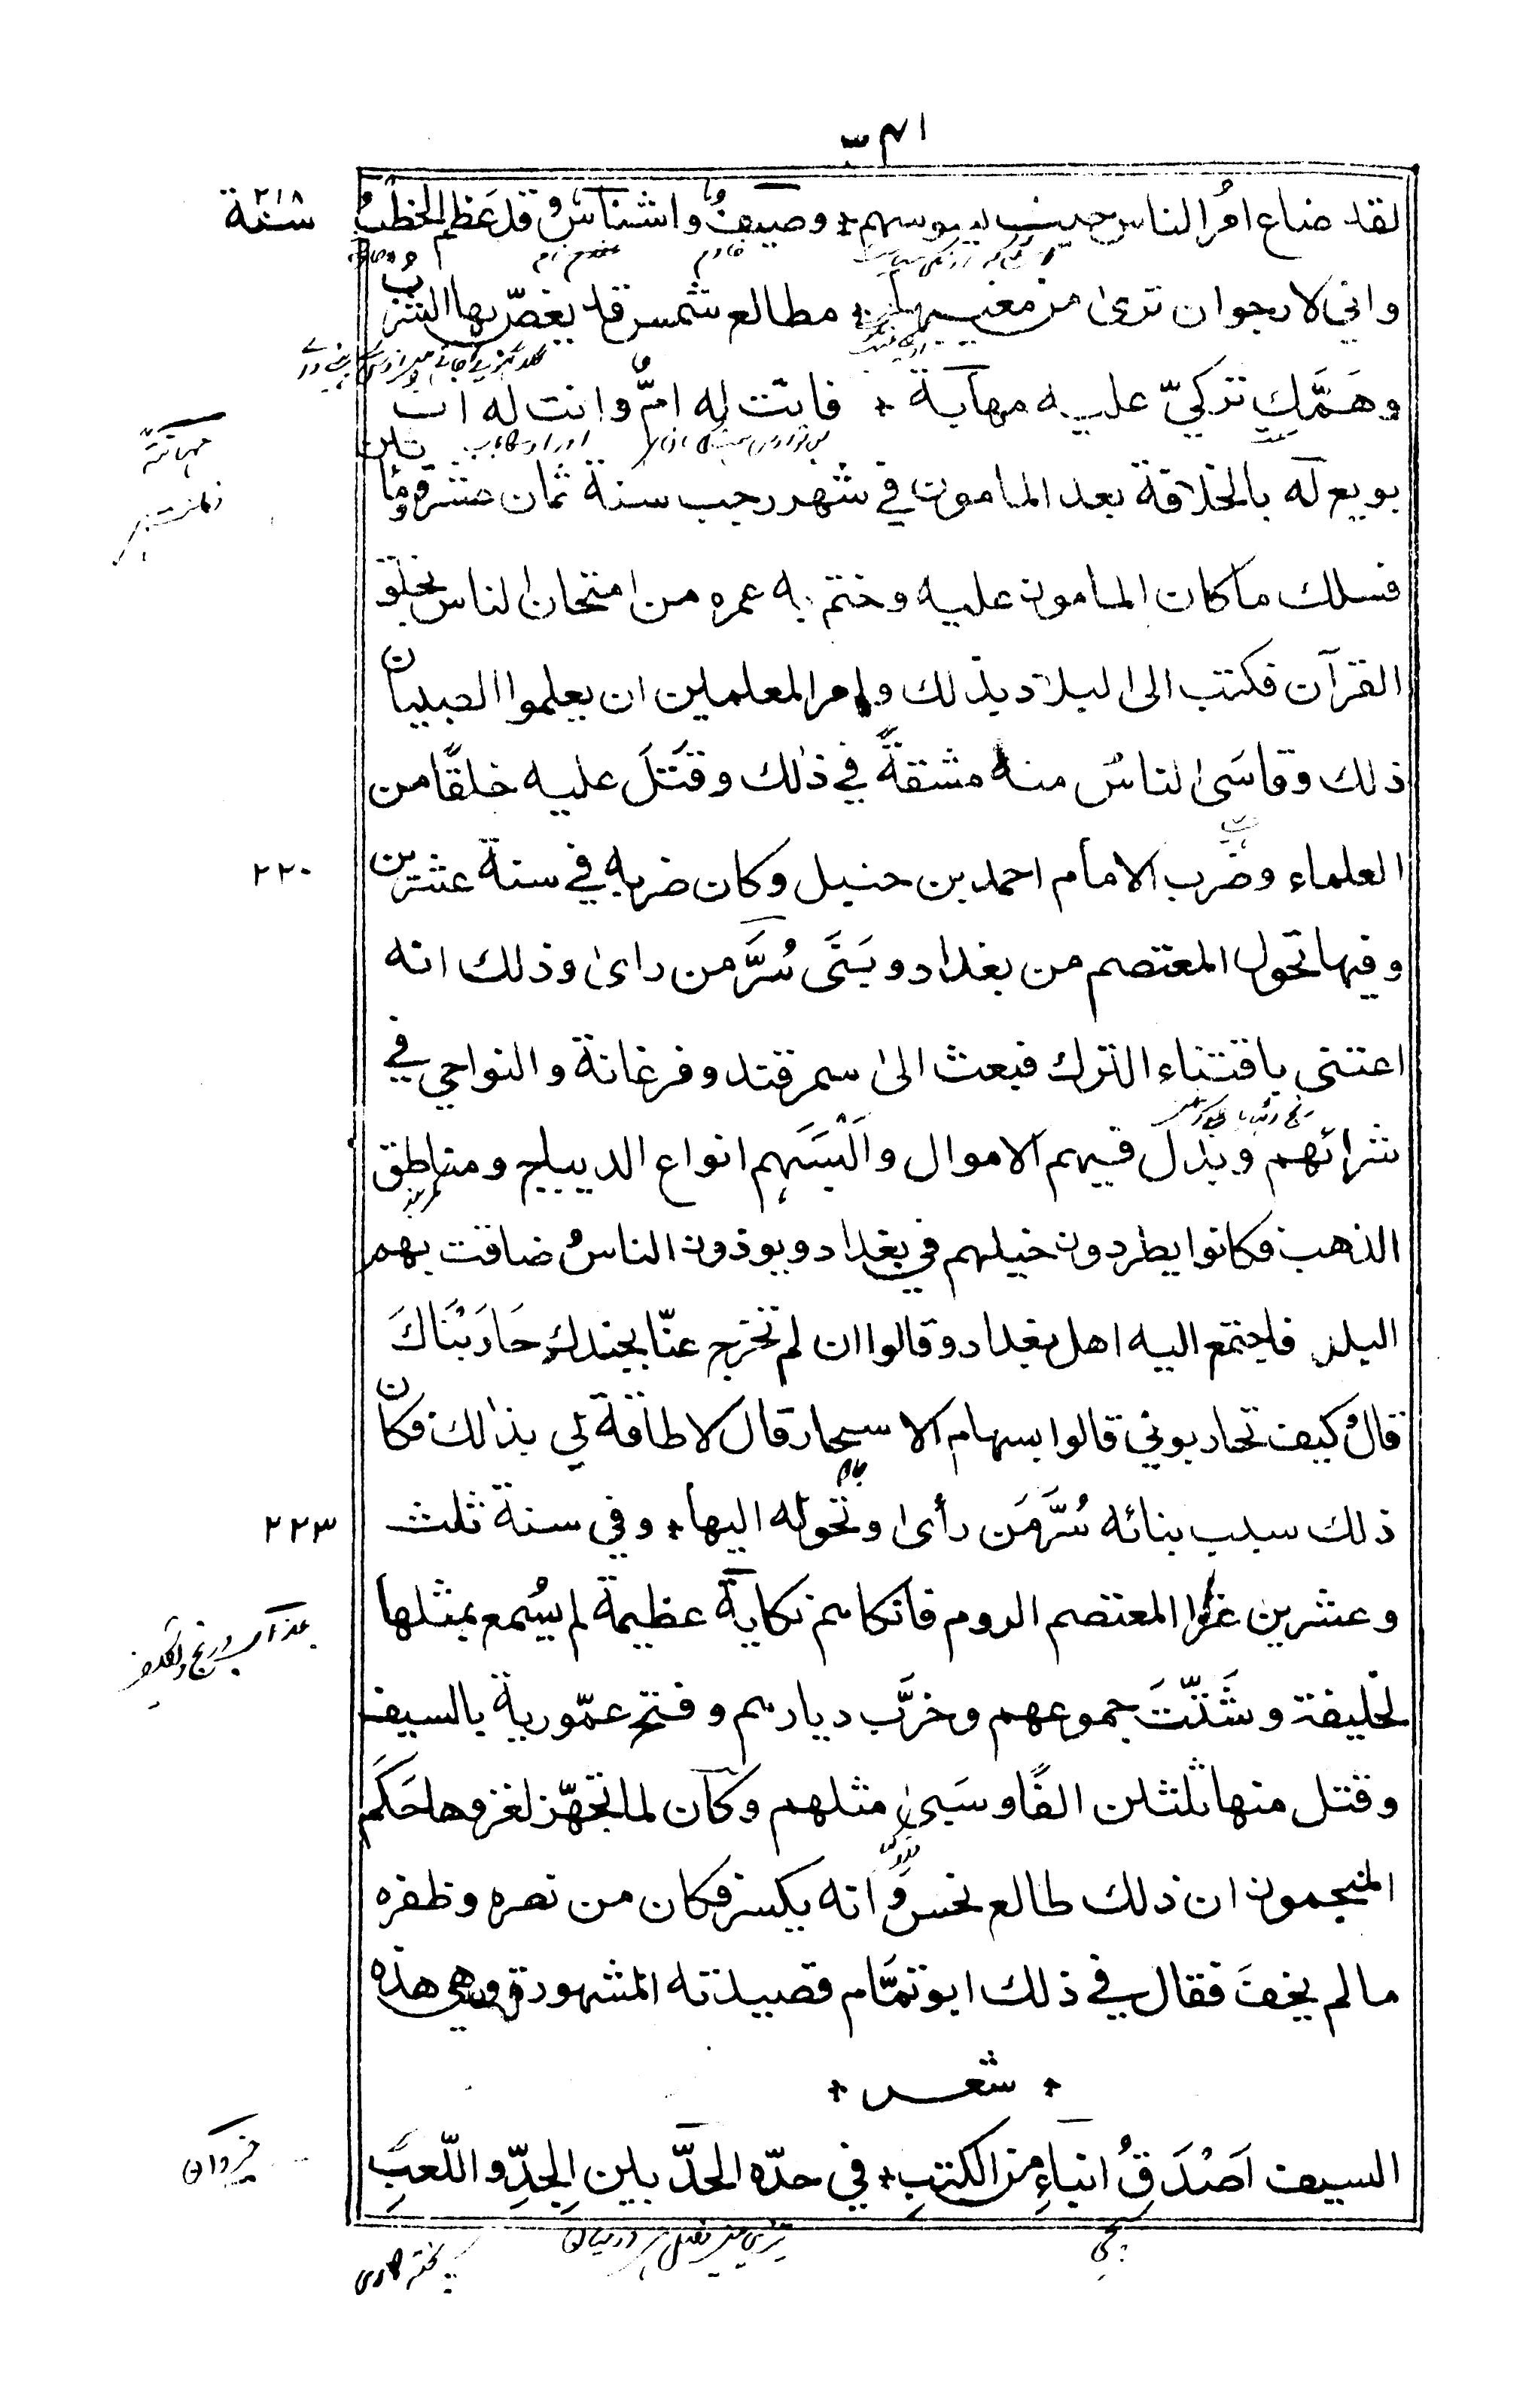 ٣٤١
لقد ضاع امرُ الناس حيث يسوسهم + وصيفٌ واشناسٌ وقد عظم الخطبُ
سنة ٢١٨
واني لارجوان ترىٰ من مغيبها + مطالع شمس قد يغصّ بها الشربُ
وهَمُّكِ تركيّ عليه مهابة + فانت له امٌّ وانت له اب
مهانة
بويع له بالخلافة بعد المامون في شهر رجب سنة ثمان عشر ومأتين
فسلك ما كان المامون عليه وختم به عمره من امتحان الناس بخلق
القرآن فكتب الى البلاد بذلك وامر المعلمين ان يعلموا الصبيان
ذلك وقاسَى الناسُ منه مشقةً في ذٰلك وقَتَلَ عليه خلقًا من
العلماء وضرب الامام احمد بن حنبل وكان ضربه في سنة عشرين
٢٢٠
وفيها تحول المعتصم من بغداد وبَنَى سُرَّ من راىٰ وذلك انه
اعتنى باقتناء الترك فبعث الىٰ سمرقند وفرغانة والنواحي في
شرائهم وبذل فيهم الاموال واَلْبَسَهم انواع الديباج ومناطق
الذهب فكانوا يطردون خيلهم في بغداد ويوذون الناسُ ضاقت بهم
البلد فاجتمع اليه اهل بغداد وقالوا ان لم تخرج عنّا بجندك حَارَبْنَاكَ
قال كيف تحاربوني قالوا بسهام الاسحار قال لا طاقة لي بذٰلك فكان
ذلك سبب بنائه سُرَّ مَن رأىٰ وتحوله اليها + وفي سنة ثلث
٢٢٣
وعشرين غزا المعتصم الروم فانكاهم نكايةً عظيمة لم يُسمع بمثلها
عذاب ورنج وتكليف
لخليفة وشَتّتَ جموعهم وخرَّب ديارهم وفتح عمّورية بالسيف
وقتل منها ثلثين الفًا وسَبىٰ مثلهم وكان لما تجهّز لغزوها حَكَمَ
المنجمون ان ذلك طالع نحس وانه يكسر فكان من نصره وظفره
ما لم يخفَ فقال في ذلك ابو تمَّام قصيدته المشهورة وهي هذه
+ شعر +
السيف اَصْدَقُ انباءِ من الكتبِ + في حدّه الحدّ بين الجِدِّ واللّعبِ